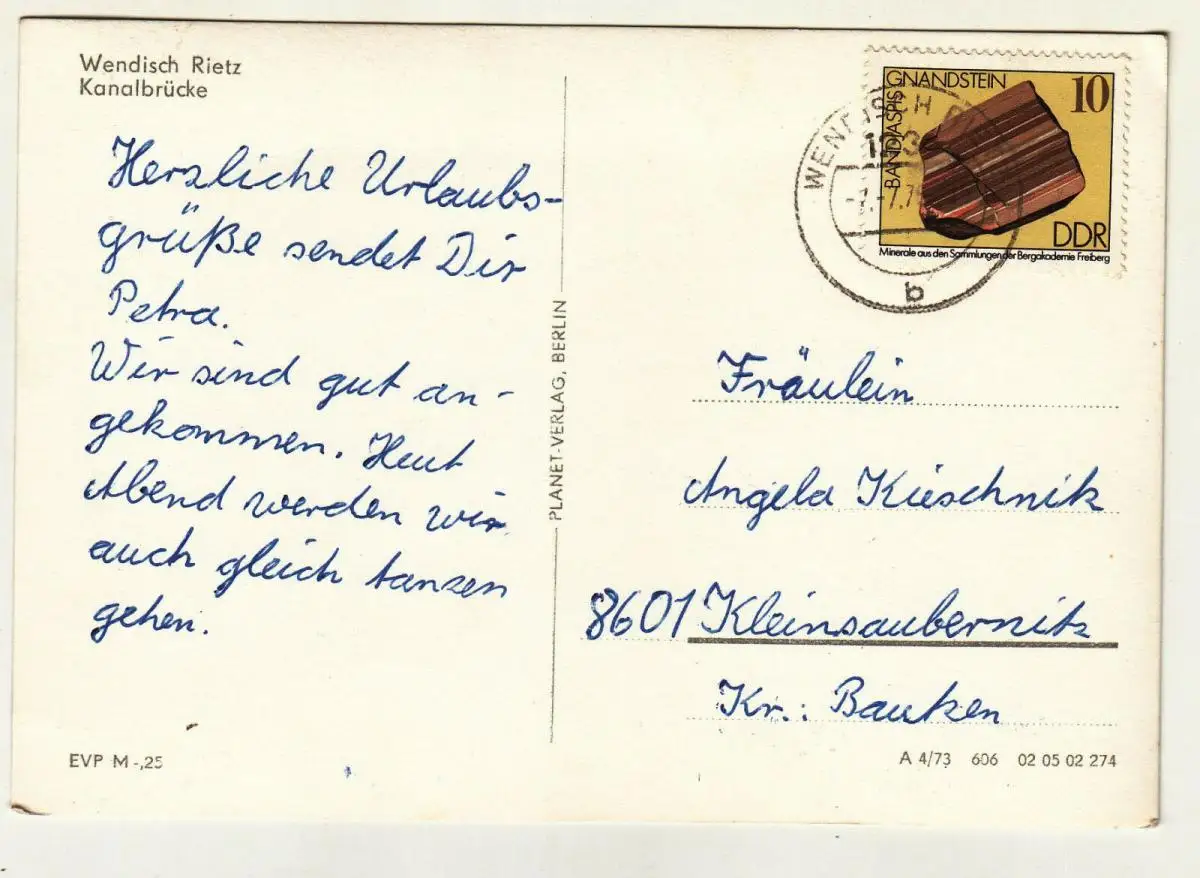 Wendisch Rietz
Kanalbrücke
Herzliche Urlaubs-
grüße sendet Dir
Petra.
Wir sind gut an-
gekommen. Heut
Abend werden wir
auch gleich tanzen
gehen.
EVP M -,25
PLANET-VERLAG, BERLIN
GNANDSTEIN
BANDJASPIS
10
DDR
Minerale aus den Sammlungen der Bergakademie Freiberg
b
Fräulein
Angela Kieschnik
8601 Kleinsaubernitz
Kr.: Bautzen
A 4/73 606 02 05 02 274